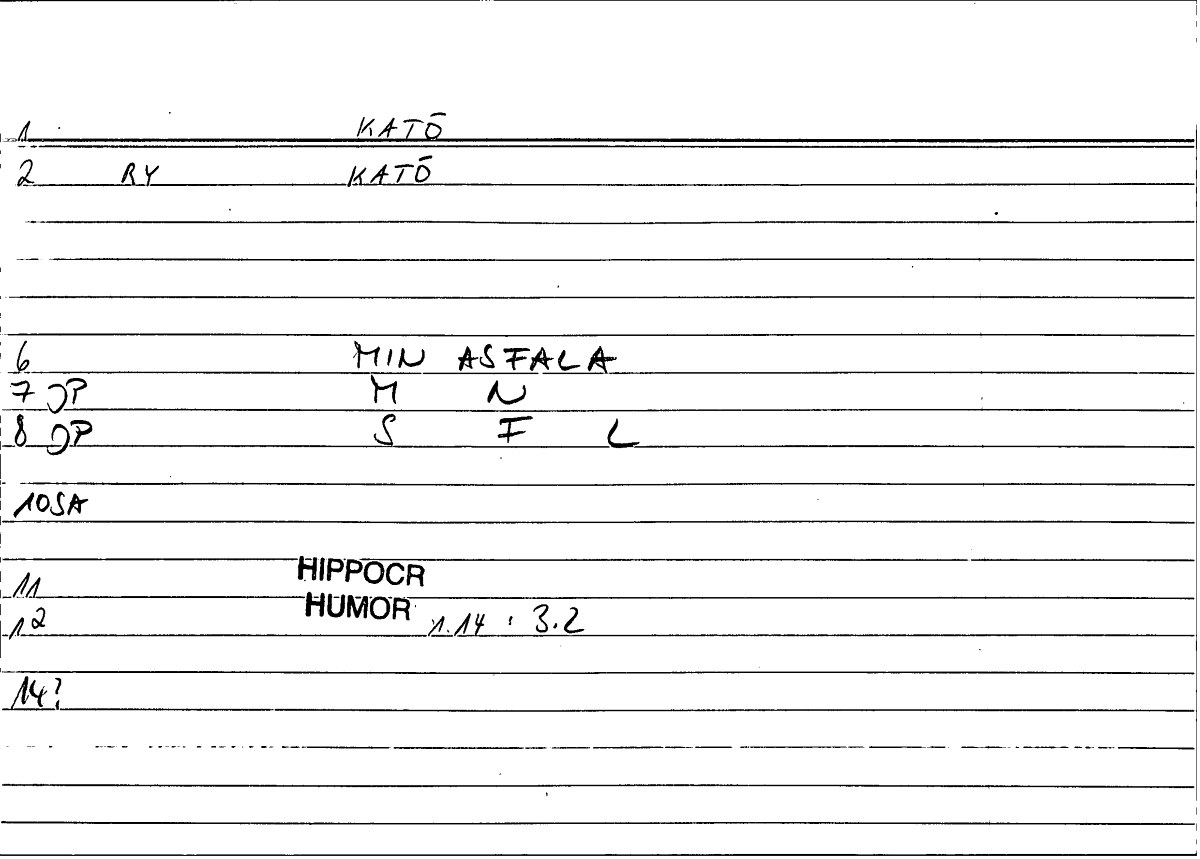 1 KATŌ
2 RY KATŌ
6 MIN ASFALA
7 JP M N
8 JP S F L
10SA
11 HIPPOCR
12 HUMOR 1.14 . 3.2
14?